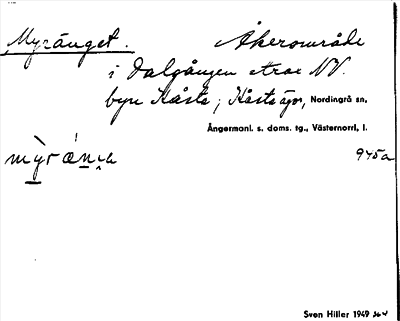 Myränget. Åkerområde
i Dalgången strax NV.
byn Kåsta; Kåsta ägor, Nordingrå sn,
Ångermanl. s. doms. tg., Västernorrl, l.
945a
Sven Hiller 1949